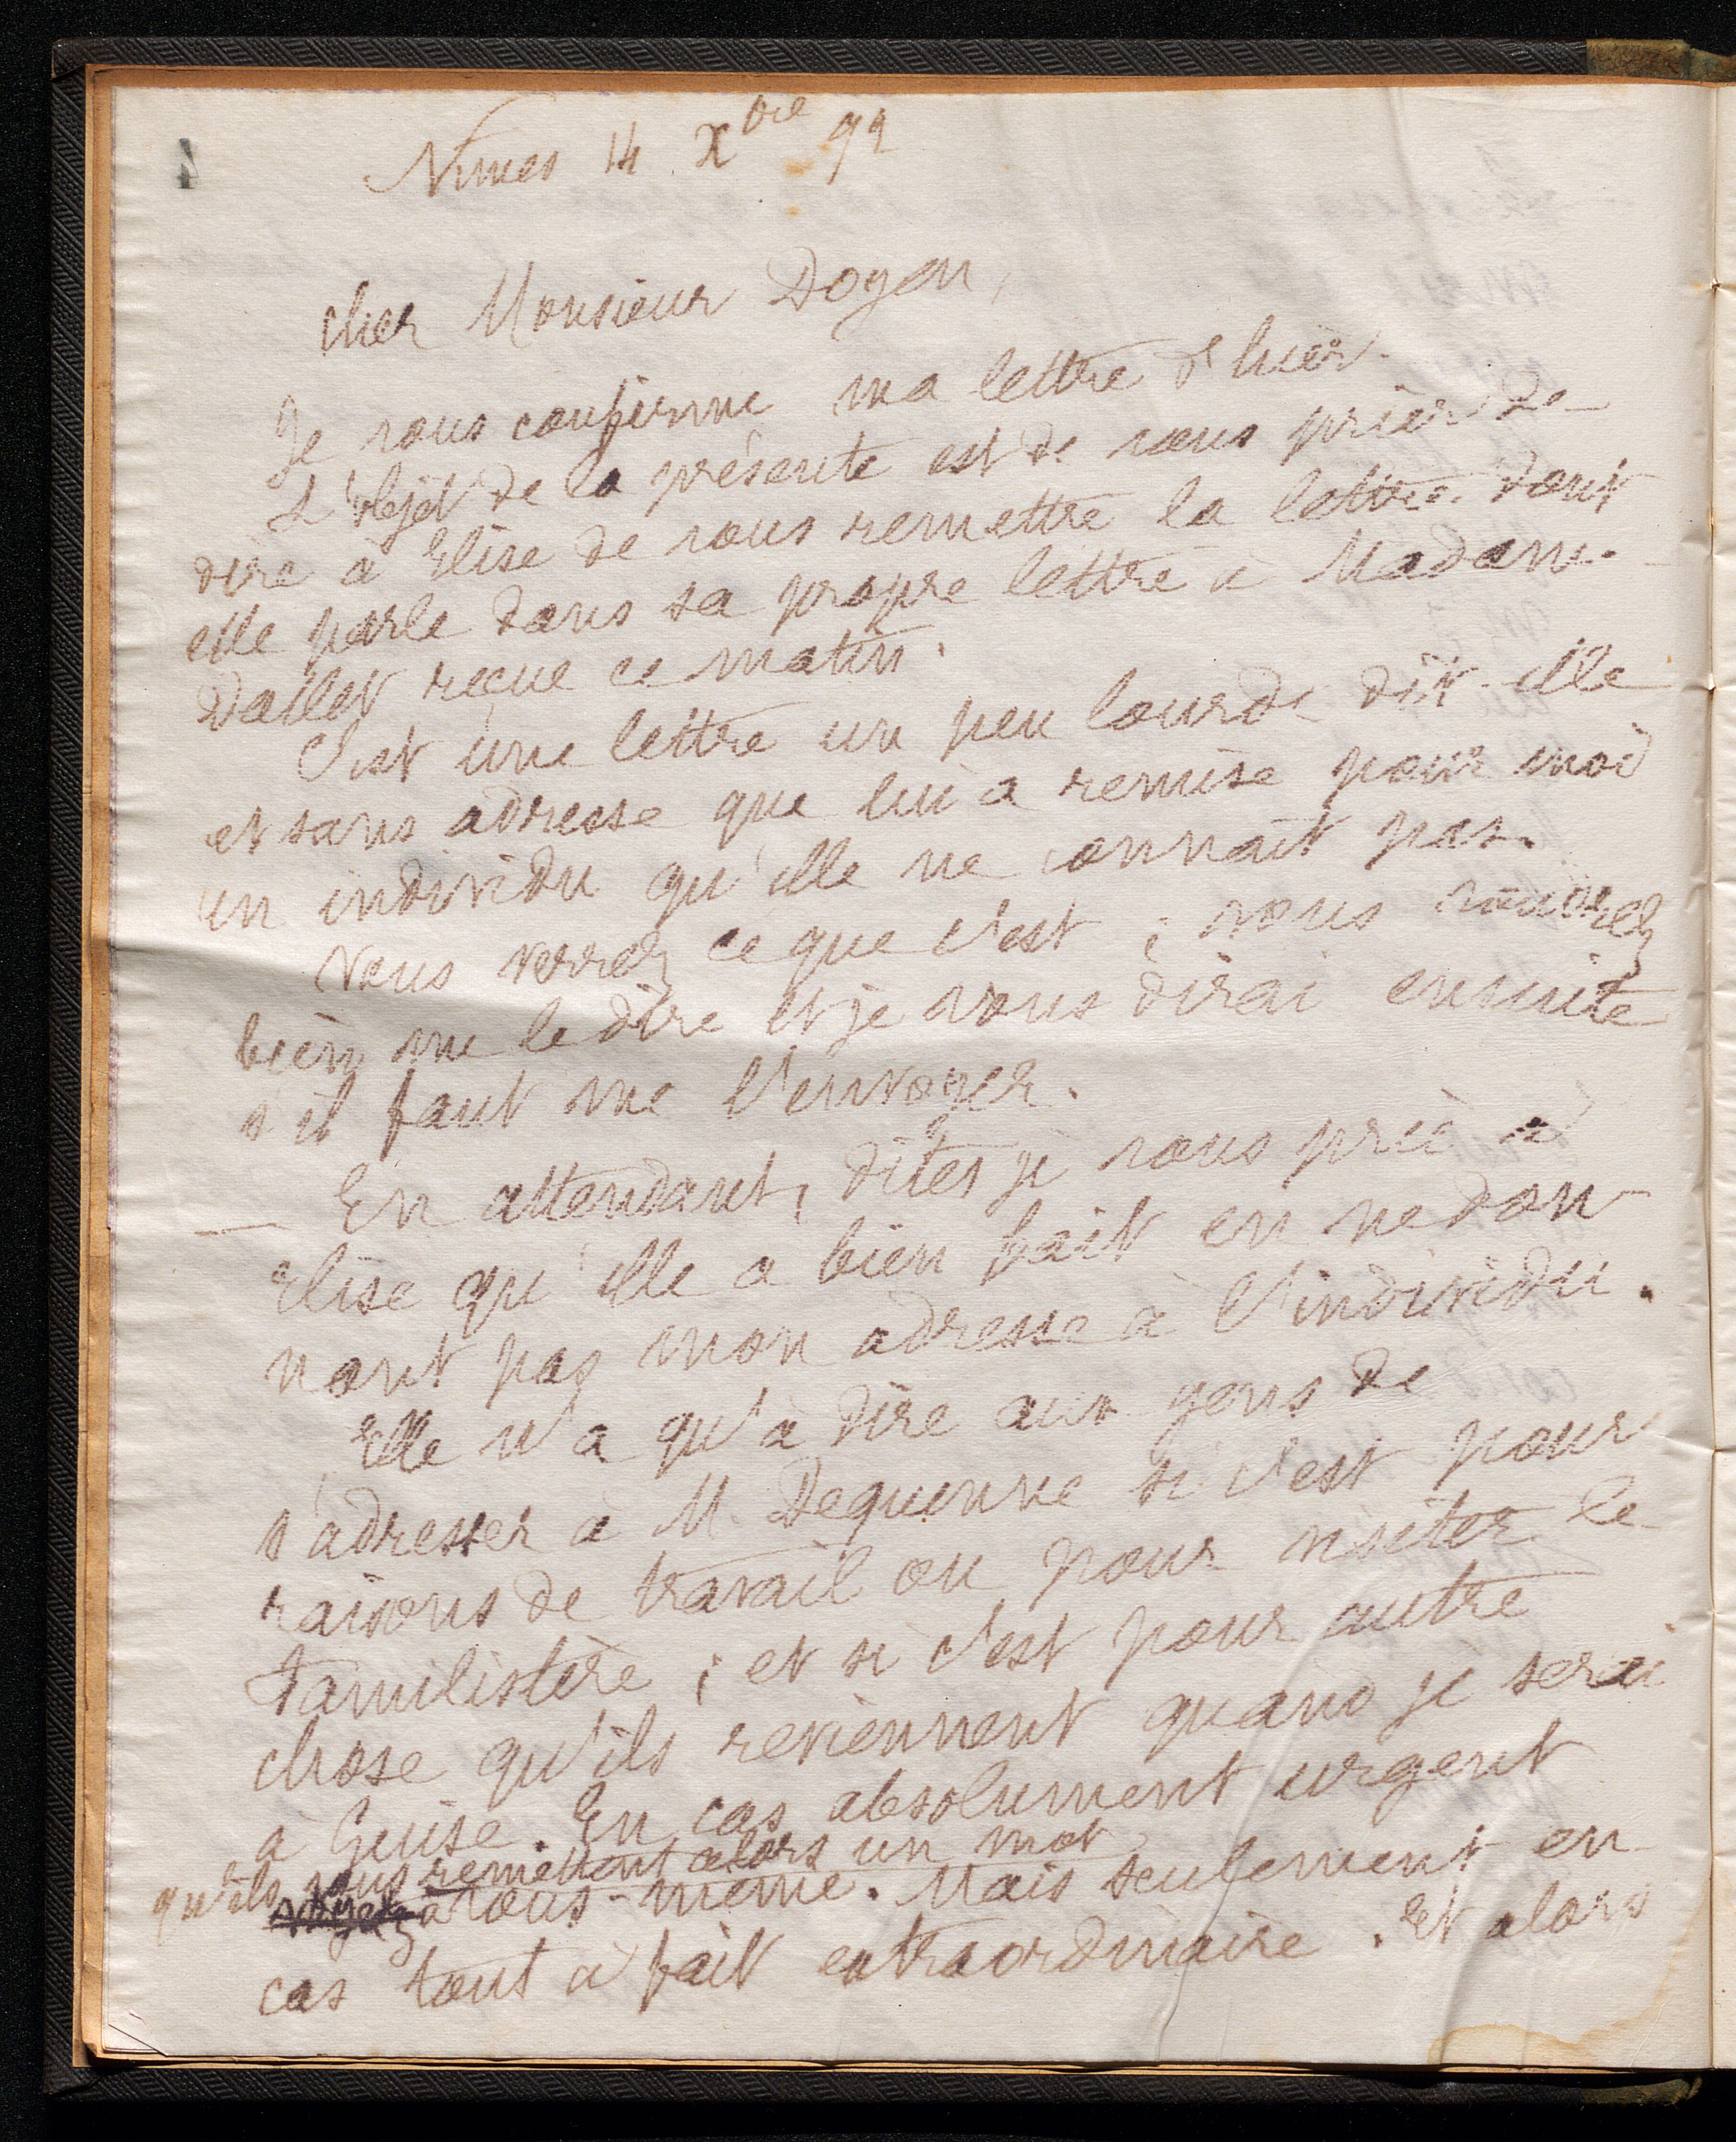 Nimes 14 Xbre 92
Cher Monsieur Doyen,
Je vous confirme ma lettre d'hier.
L'objet de la présente est de vous prier de
dire à Elise de vous remettre la lettre dont
elle parle dans sa propre lettre à Madame
Dallet reçue ce matin.
C'est une lettre un peu lourde dit-elle
et sans adresse que lui a remise pour moi
un individu qu'elle ne connaît pas.
Vous verrez ce que c'est ; vous voudrez
bien me le dire et je vous dirai ensuite
s'il faut me l'envoyer.
En attendant, dites je vous prie à
Elise qu'elle a bien fait en ne don-
nant pas mon adresse à l'individu.
Elle n'a qu'à dire aux gens de
s'adresser à M. Dequenne si c'est pour
raisons de travail ou pour visiter le
familistère ; et si c'est pour autre
chose qu'ils reviennent quand je serai
à Guise. En cas absolument urgent
qu'ils vous remettent alors un mot
à vous-même. Mais seulement en
cas tout à fait extraordinaire. Et alors